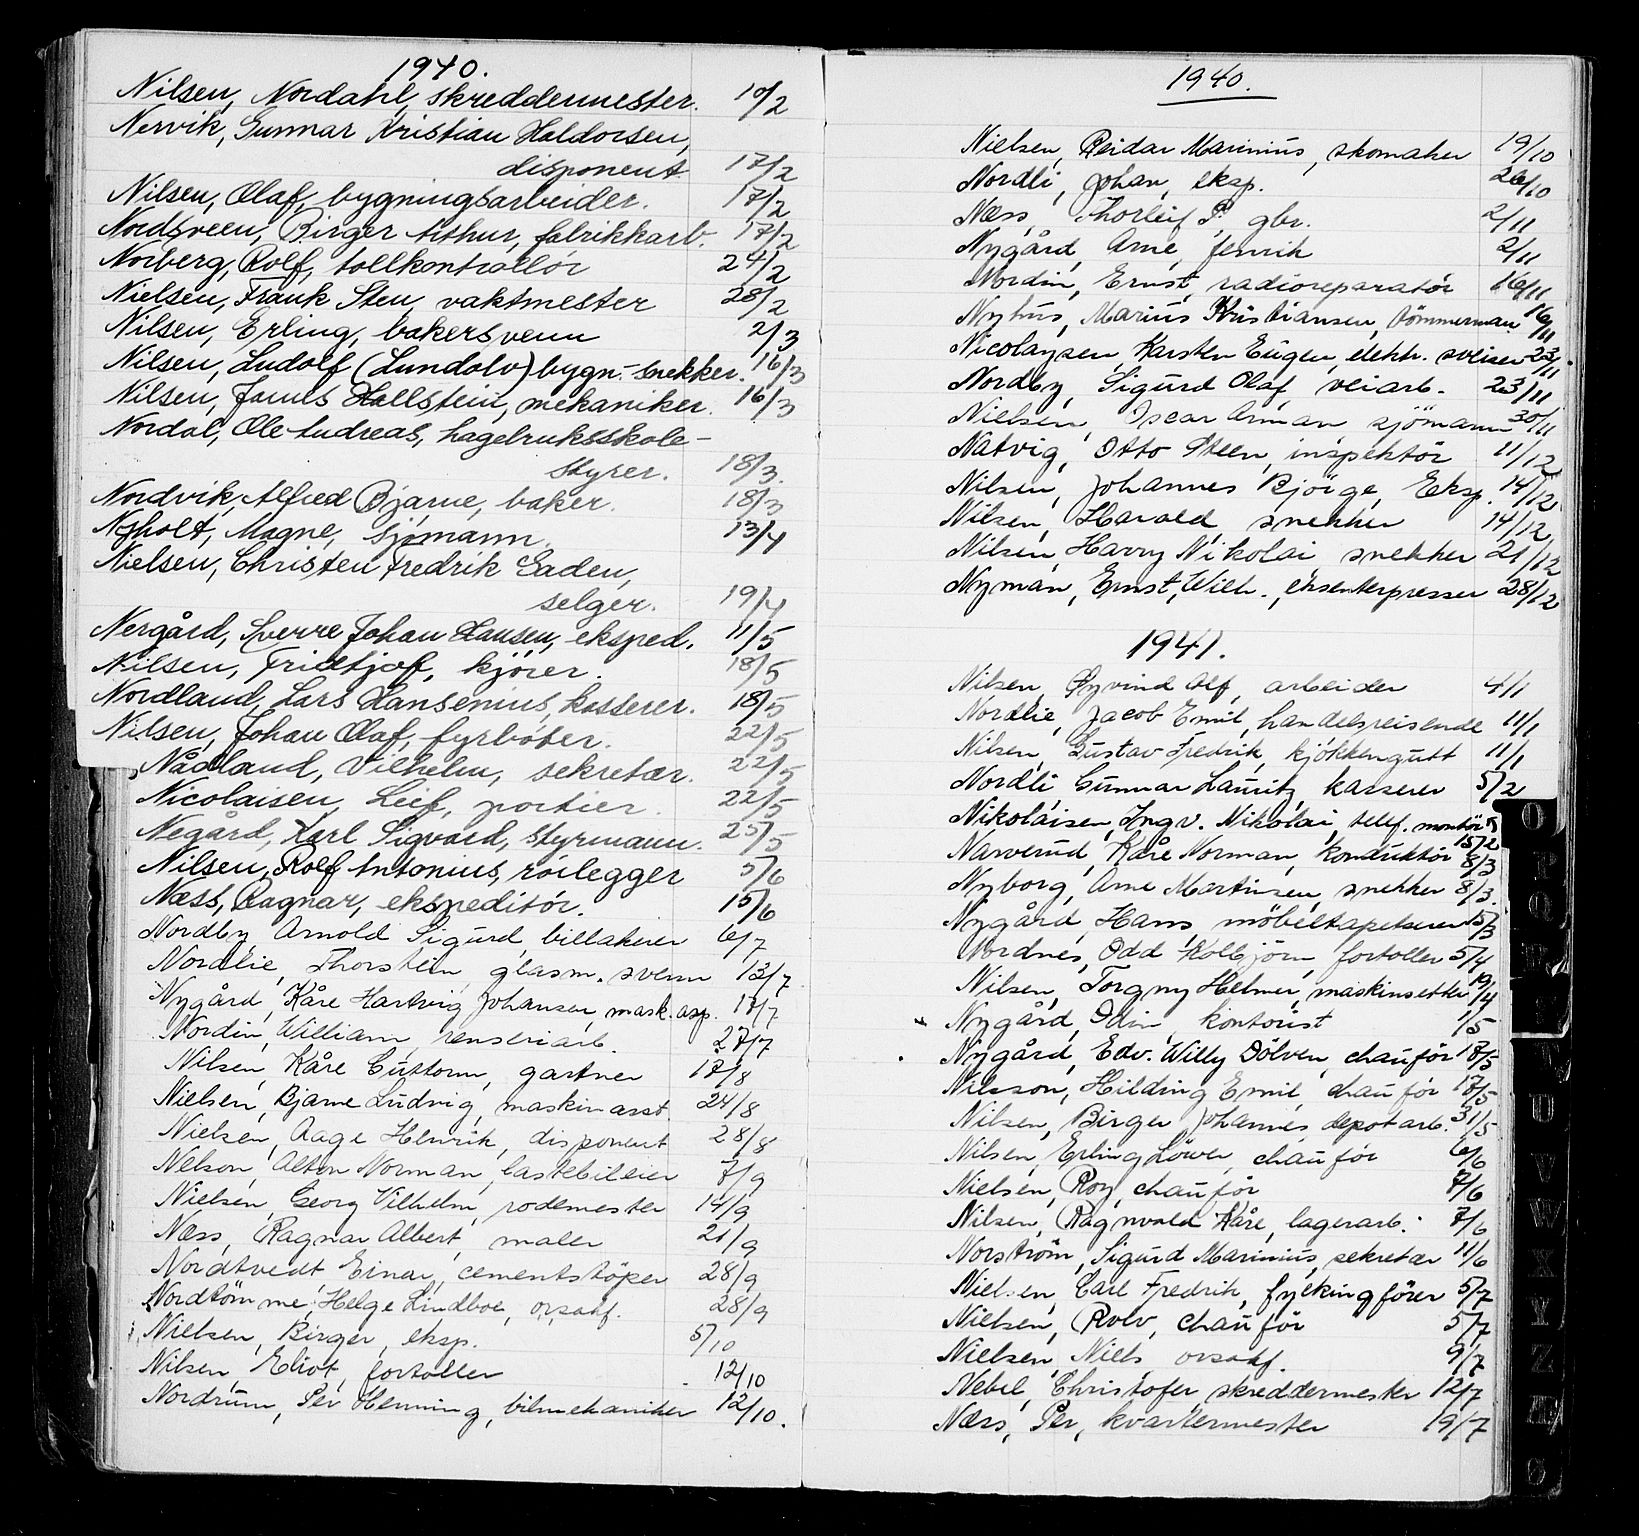 1940.
Nilsen, Nordahl, skreddermester. 10/2
Nervik, Gunnar Kristian Haldorsen,
disponent 17/2
Nilsen, Olaf, bygningsarbeider. 17/2
Nordsveen, Birger Arthur, fabrikkarb. 17/2
Norberg, Rolf, tollkontrollør 24/2
Nielsen, Frank Sten, vaktmester 28/2
Nilsen, Erling, bakersvenn 2/3
Nilsen, Ludolf (Lundolv) bygn.-snekker. 16/3
Nilsen, James Hallstein, mekaniker. 16/3
Nordal, Ole Andreas, hagebruksskole-
styrer. 18/3.
Nordvik, Alfred Bjarne, baker. 18/3
Nyholt, Magne, sjømann. 13/4
Nielsen, Christen Fredrik Gaden,
selger. 19/4
Nergård, Sverre Johan Hansen, eksped. 11/5
Nilsen, Fridtjof, kjører. 18/5
Nordland, Lars Hansenius, kasserer. 18/5
Nilsen, Johan Olaf, fyrbøter. 22/5
Nådland, Vilhelm, sekretær. 22/5
Nicolaisen, Leif, portier. 22/5
Negård, Karl Sigvard, styrmann. 25/5
Nilsen, Rolf Antonius, rørlegger 5/6
Næss, Ragnar, ekspeditør. 15/6
Nordby, Arnold Sigurd, billakerer 6/7
Nordlie, Thorstein, glasm. svenn 13/7
Nygård, Kåre Hartvig Johansen, mask.asp. 17/7
Nordin, William, renseriarb. 27/7
Nilsen, Kåre Guttorm, gartner 17/8
Nielsen, Bjarne Ludvig, maskinasst. 24/8
Nielsen, Aage Henrik, disponent 28/8
Nelson, Alton Norman, lastebileier 7/9
Nielsen, Georg Vilhelm, rodemester 14/9
Næss, Ragnar Albert, maler 21/9
Nordtvedt, Einar, cementstöper 28/9
Nordtömme, Helge Lindboe, orsakf. 28/9
Nielsen, Birger, eksp. 5/10
Nilsen, Eliot, fortoller 12/10
Nordrum, Per Henning, bilmekaniker 12/10.
1940.
Nielsen, Reidar Marinius, skomaker 19/10
Nordli, Johan, eksp. 26/10
Næss, Thorleif P. gbr. 2/11
Nygård, Arne, fenrik 2/11
Nordin, Ernst, radioreparatör 16/11
Nyhus, Marius Kristiansen, tömmermann 16/11
Nicolaysen, Karsten Eugen, elektr. sveiser 23/11
Nordby, Sigurd Olaf, veiarb. 23/11
Nielsen, Oscar Arman sjömann 30/11
Natvig, Otto Steen, inspektör 11/12
Nilsen, Johannes Bjørge, Eksp. 14/12
Nilsen, Harald, snekker 14/12
Nilsen, Harry Nikolai, snekker 21/12
Nyman, Ernst, Wilh., eksenterpresser 28/12
1941.
Nilsen, Øyvind Alf, arbeider 4/1
Nordlie, Jacob Emil, handelsreisende 11/1
Nilsen, Gustav Fredrik, kjøkkengutt 11/1
Nordli Gunnar Lauritz, kasserer 5/2
Nikolaisen, Ingv. Nikolai, telef. montör 15/2
Narverud, Kåre Norman, konduktör 8/3
Nyborg, Arne Martinsen, snekker 8/3.
Nygård, Hans, möbeltapetserer 15/3
Nordnes, Odd Kolbjörn, fortoller 5/4
Nilsen, Torgny Helmer, maskinsetter 19/4
Nygård, Odin, kontorist 1/5
Nygård, Edv. Willy Dölven, chauför 18/5
Nilsson, Hilding Emil, chauför 17/5
Nilsen, Birger Johannes, depotarb. 31/5
Nilsen, Erling Löwer, chauför 6/6
Nielsen, Roy, chauför 7/6
Nilsen, Ragnvald Kåre, lagerarb. 7/6
Norström, Sigurd Marinius, sekretær 11/6
Nielsen, Carl Fredrik, fyckingförer 5/7
Nielsen, Rolv, chauför 5/7
Nielsen, Niels, orsakf. 9/7
Nebel, Christofer skreddermester 12/7
Næss, Per, kvartermester 19/7
O
P
Q
R
S
T
U
V
W
X
Y
Z
Æ
Ö